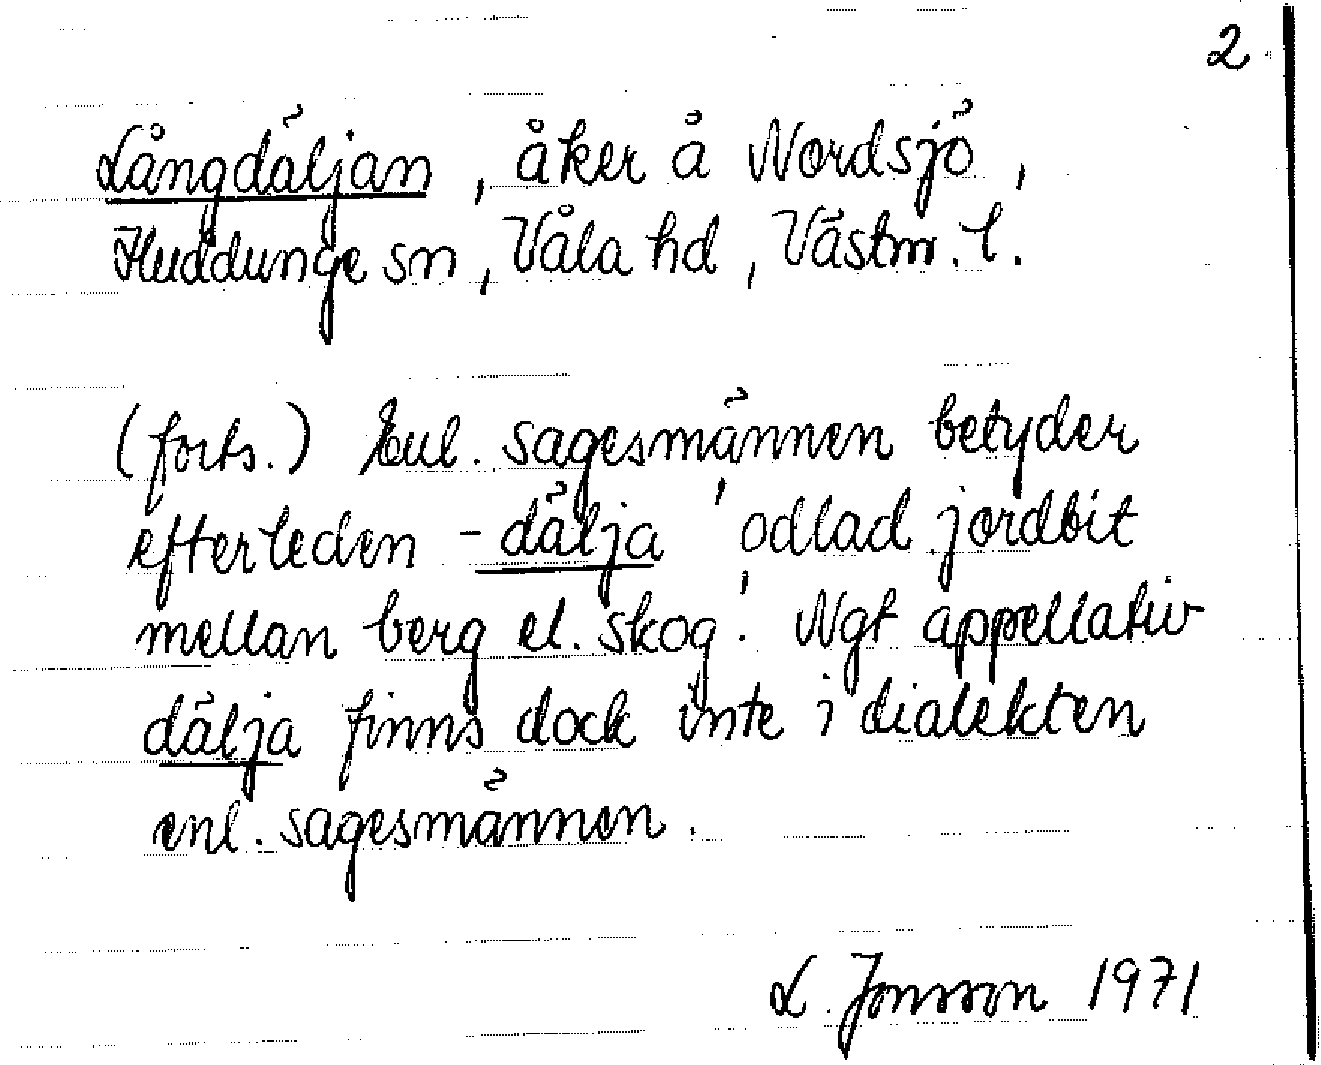 2.
Långdäljan, åker å Nordsjö,
Huddunge sn, Våla hd, Västm. l.
(forts.) Enl. sagesmännen betyder
efterleden -dälja 'odlad jordbit
mellan berg el. skog'. Ngt appellativ
dälja finns dock inte i dialekten
enl. sagesmännen.
L. Jonsson 1971